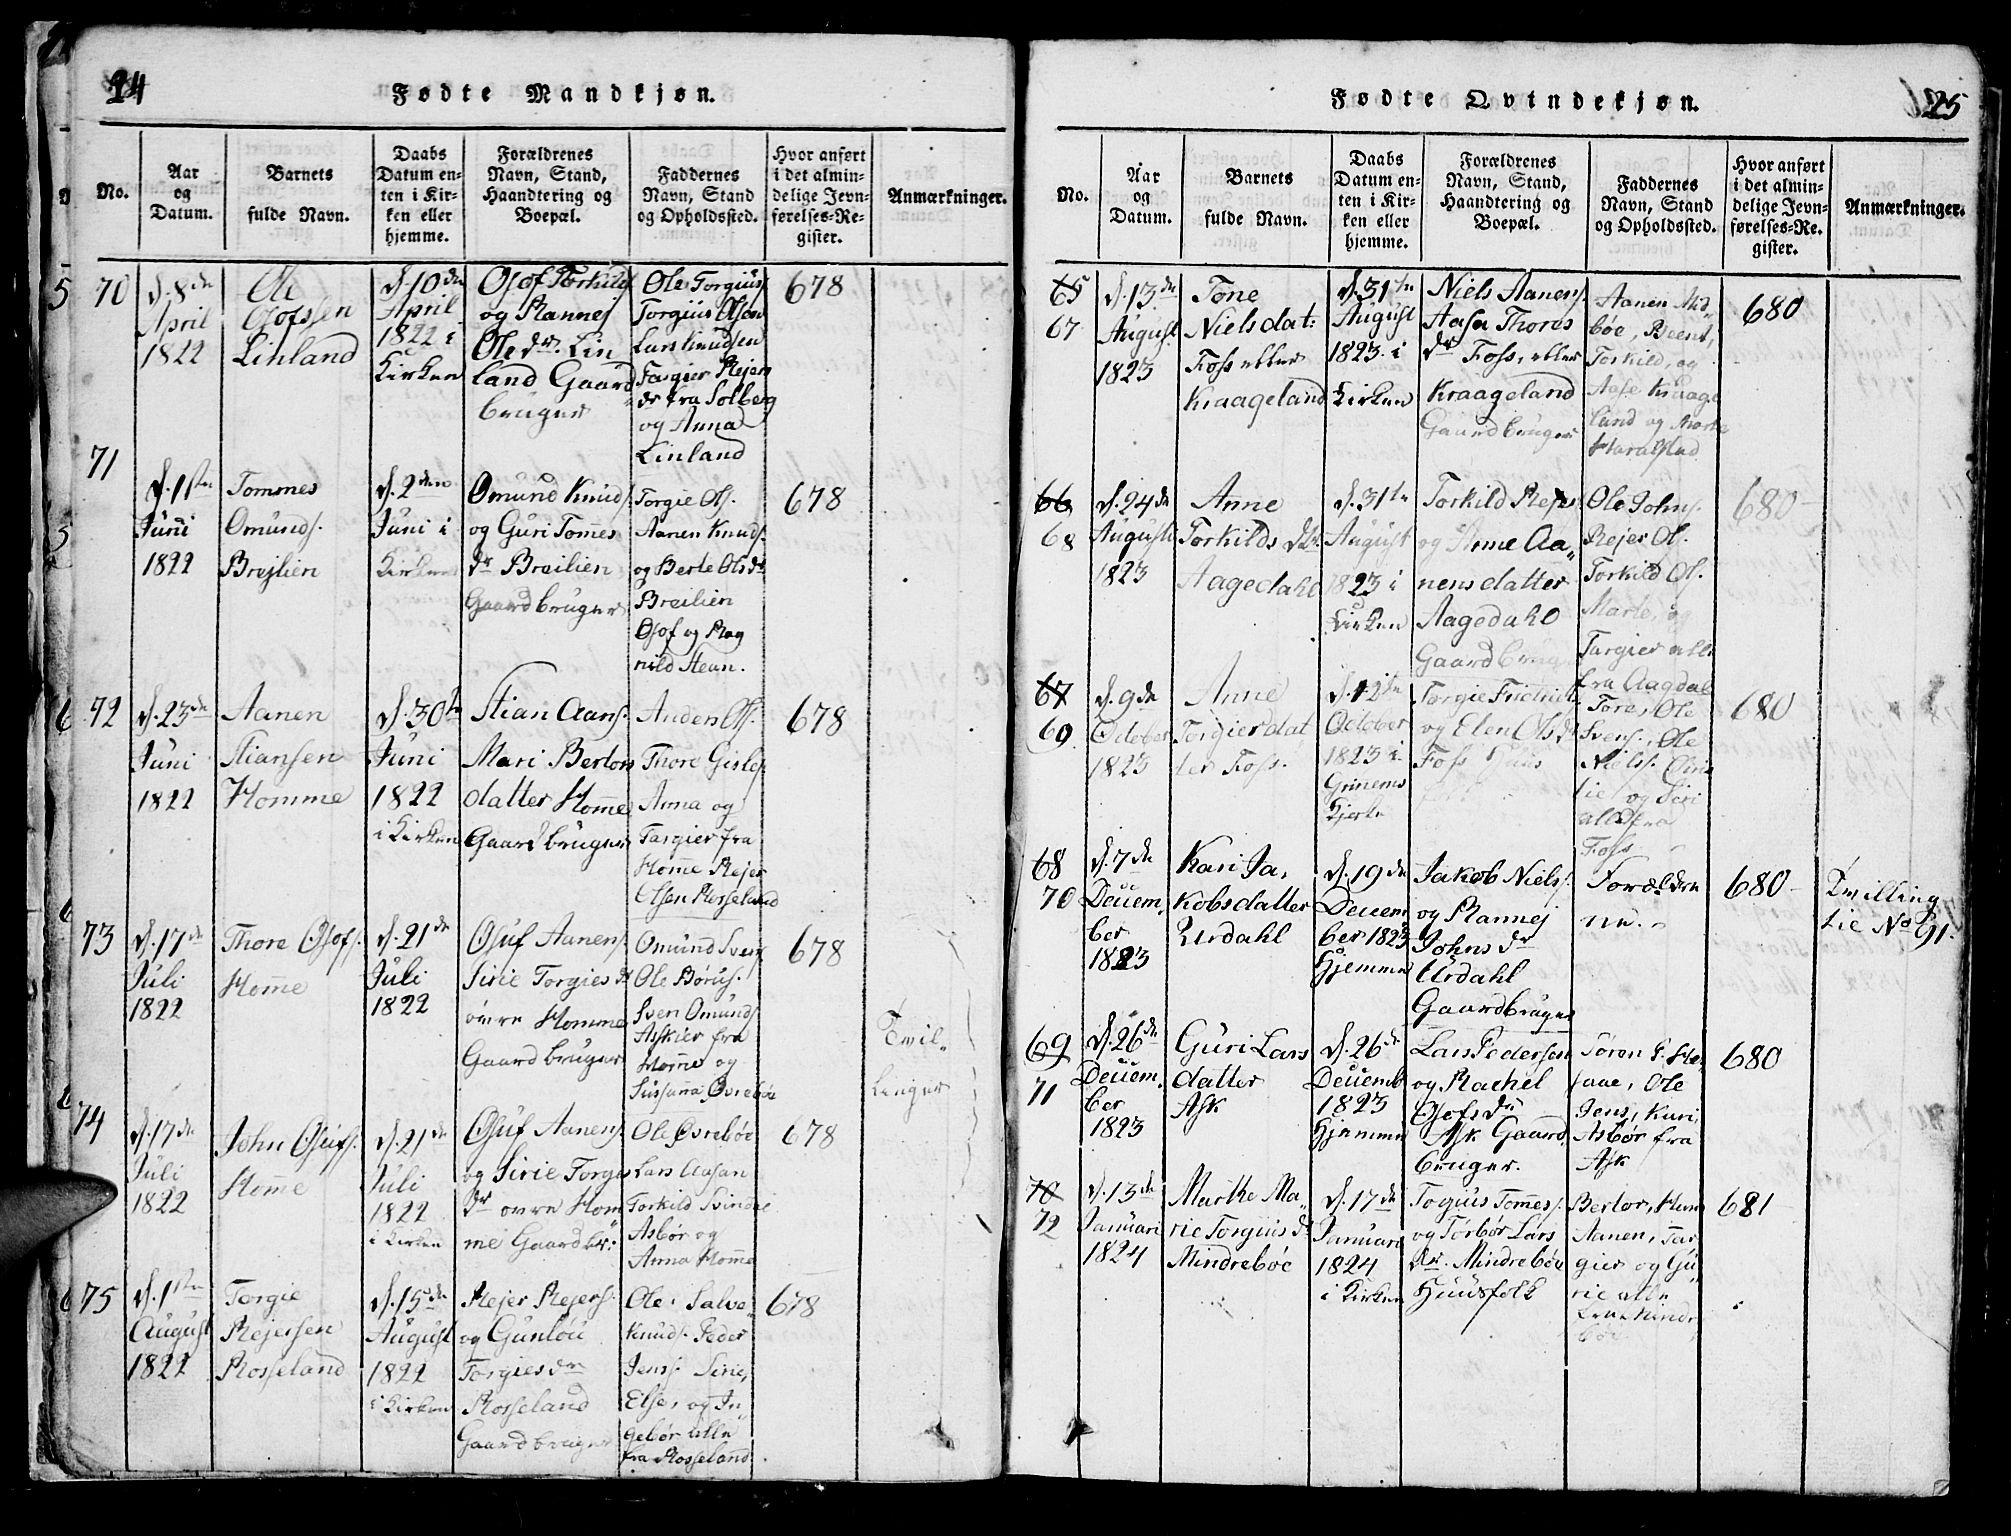 24
Fødte Mandkjøn.
No.
Aar
og
Datum.
Barnets
fulde Navn.
Daabs
Datum en-
ten i Kir-
ken eller
hjemme.
Forældrenes
Navn, Stand,
Haandtering og
Boepæl.
Faddernes
Navn, Stand
og Opholdssted.
Hvor anført
i det almin-
delige Jevn-
førelses-Re-
gister.
Anmærkninger.
70
d. 8de
April
1822
Ole
Osofssen
Linland
d. 10de
April
1822 i
Kirken
Osof Torkilds
og Rannej
Ole dr. Lin
land Gaard
bruger
Ole Torgius
Torgius Olsen
Lars Knudsen
Targier Rejers
dr fra Solberg
og Anna
Linland
678
71
d. 1ste
Juni
1822
Tommes
Omunds.
Brejlien
d. 2den
Juni i
Kirken
Omund Knuds.
og Guri Tomes
dr Breilien
Gaardbruger
Torgie Ols.
Aanen Knuds.
og Berte Ols dr
Breilien
Osof og Rag
nild Stean.
678
72
d. 23de
Juni
1822
Aanen
Stiansen
Homme
d. 30te
Juni
1822
i Kirken
Stian Aans.
Mari Bertors
datter Home
Gaardbruger
Anden Ols.
Thore Gisles.
Anna og
Targier fra
Home Rejer
Olsen Rosseland
678
73
d. 17de
Juli
1822
Thore Osofs.
Home
d. 21de
Juli
1822
Osuf Aanens.
Sirie Torgies dr
øvre Homme
Gaardbruger
Omund Svens.
Ole Børus.
Sven Omunds.
Askier fra
Home og
Susana Øvrebøe
678
Tvil-
linger
74
d. 17de
Juli
1822
John Osufs.
Home
d. 21de
Juli
1822
i Kirken
Osuf Aanens.
og Sirie Torges
dr øvre Hom
me Gaardbr:
Ole Øvrebøe
Lars Aasan
Torkild Svindal
Asbør og
Anna Home
678
75
d. 1ste
August
1822
Torgie
Rejersen
Rosseland
d. 15de
August
1822
i Kirken
Rejer Rejers.
og Gunlou
Torgies dr
Rosseland
Gaardbruger
Ole, Salve
Knuds. Peder
Jens. Sirie,
Else, og In
gebør alle
fra Rosseland.
678
25
Fødte Qvindekjøn.
No.
Aar
og
Datum.
Barnets
fulde Navn.
Daabs
Datum en-
ten i Kir-
ken eller
hjemme.
Forældrenes
Navn, Stand,
Haandtering og
Boepæl.
Faddernes
Navn, Stand
og Opholdssted.
Hvor anført
i det almin-
delige Jevn-
førelses-Re-
gister.
Anmærkninger.
65
67
d. 13de
August
1823
Tone
Nielsdat:
Foss eller
Kraageland
d. 31te
August
1823 i
Kirken
Niels Aanens.
Aasa Thores
dr Foss, eller
Kraageland
Gaardbruger
Aanen Mid-
bøe, Beent,
Torkild, og
Aase Kraage
land og Marte
Haralstad
680
66
68
d. 24de
August
1823
Anne
Torkilds dtr.
Aagedahl
d. 31te
August
1823 i
Kirken
Torkild Rejers
og Anne Aa-
nensdatter
Aagedahl
Gaardbruger
Ole Johns.
Rejer Ol.
Torkild Ol.
Marte, og
Targier alle
fra Aagdal
680
67
69
d. 9de
October
1823
Anne
Torgierdat
ter Foss.
d. 12de
October
1823 i
Grinems
Kjerke
Torgie Fridrich
og Elen Ols dr
Foss Huus
Tore, Ole
Svens. Ole
Niels.
og Siri
alle fra
Foss
680
68
70
d. 7de
Decem.
ber
1823
Kari Ja,
kobsdatter
Urdahl
d. 19de
Decem
ber 1823
Hjemme
Jakob Niels.
og Rannej
Johns dr
Urdahl
Gaardbruger
Forældre
ne.
680
Tvilling
tie No 91.
69
71
d. 26de
Decem.
ber
1823
Guri Lars
datter
Ask
d. 26de
Decemb
1823
Hjemme
Lars Pedersen
og Rachel
Osofs dr
Ask Gaard
bruger.
Søren P. Ho
faae, Ole
Jens, Kari,
Asbør fra
Ask
680
70
72
d. 13de
Januari
1824
Marthe Ma
rie Torgius dr
Mindrebøe
d. 17de
Januari
1824
i Kirken
Togius Tomes.
og Torbør Lars
dr. Mindrebøe
Huusfolk
Bertor,
Aanen, Tar
gier og Gu
rie alle
fra Mindre
bøe
681